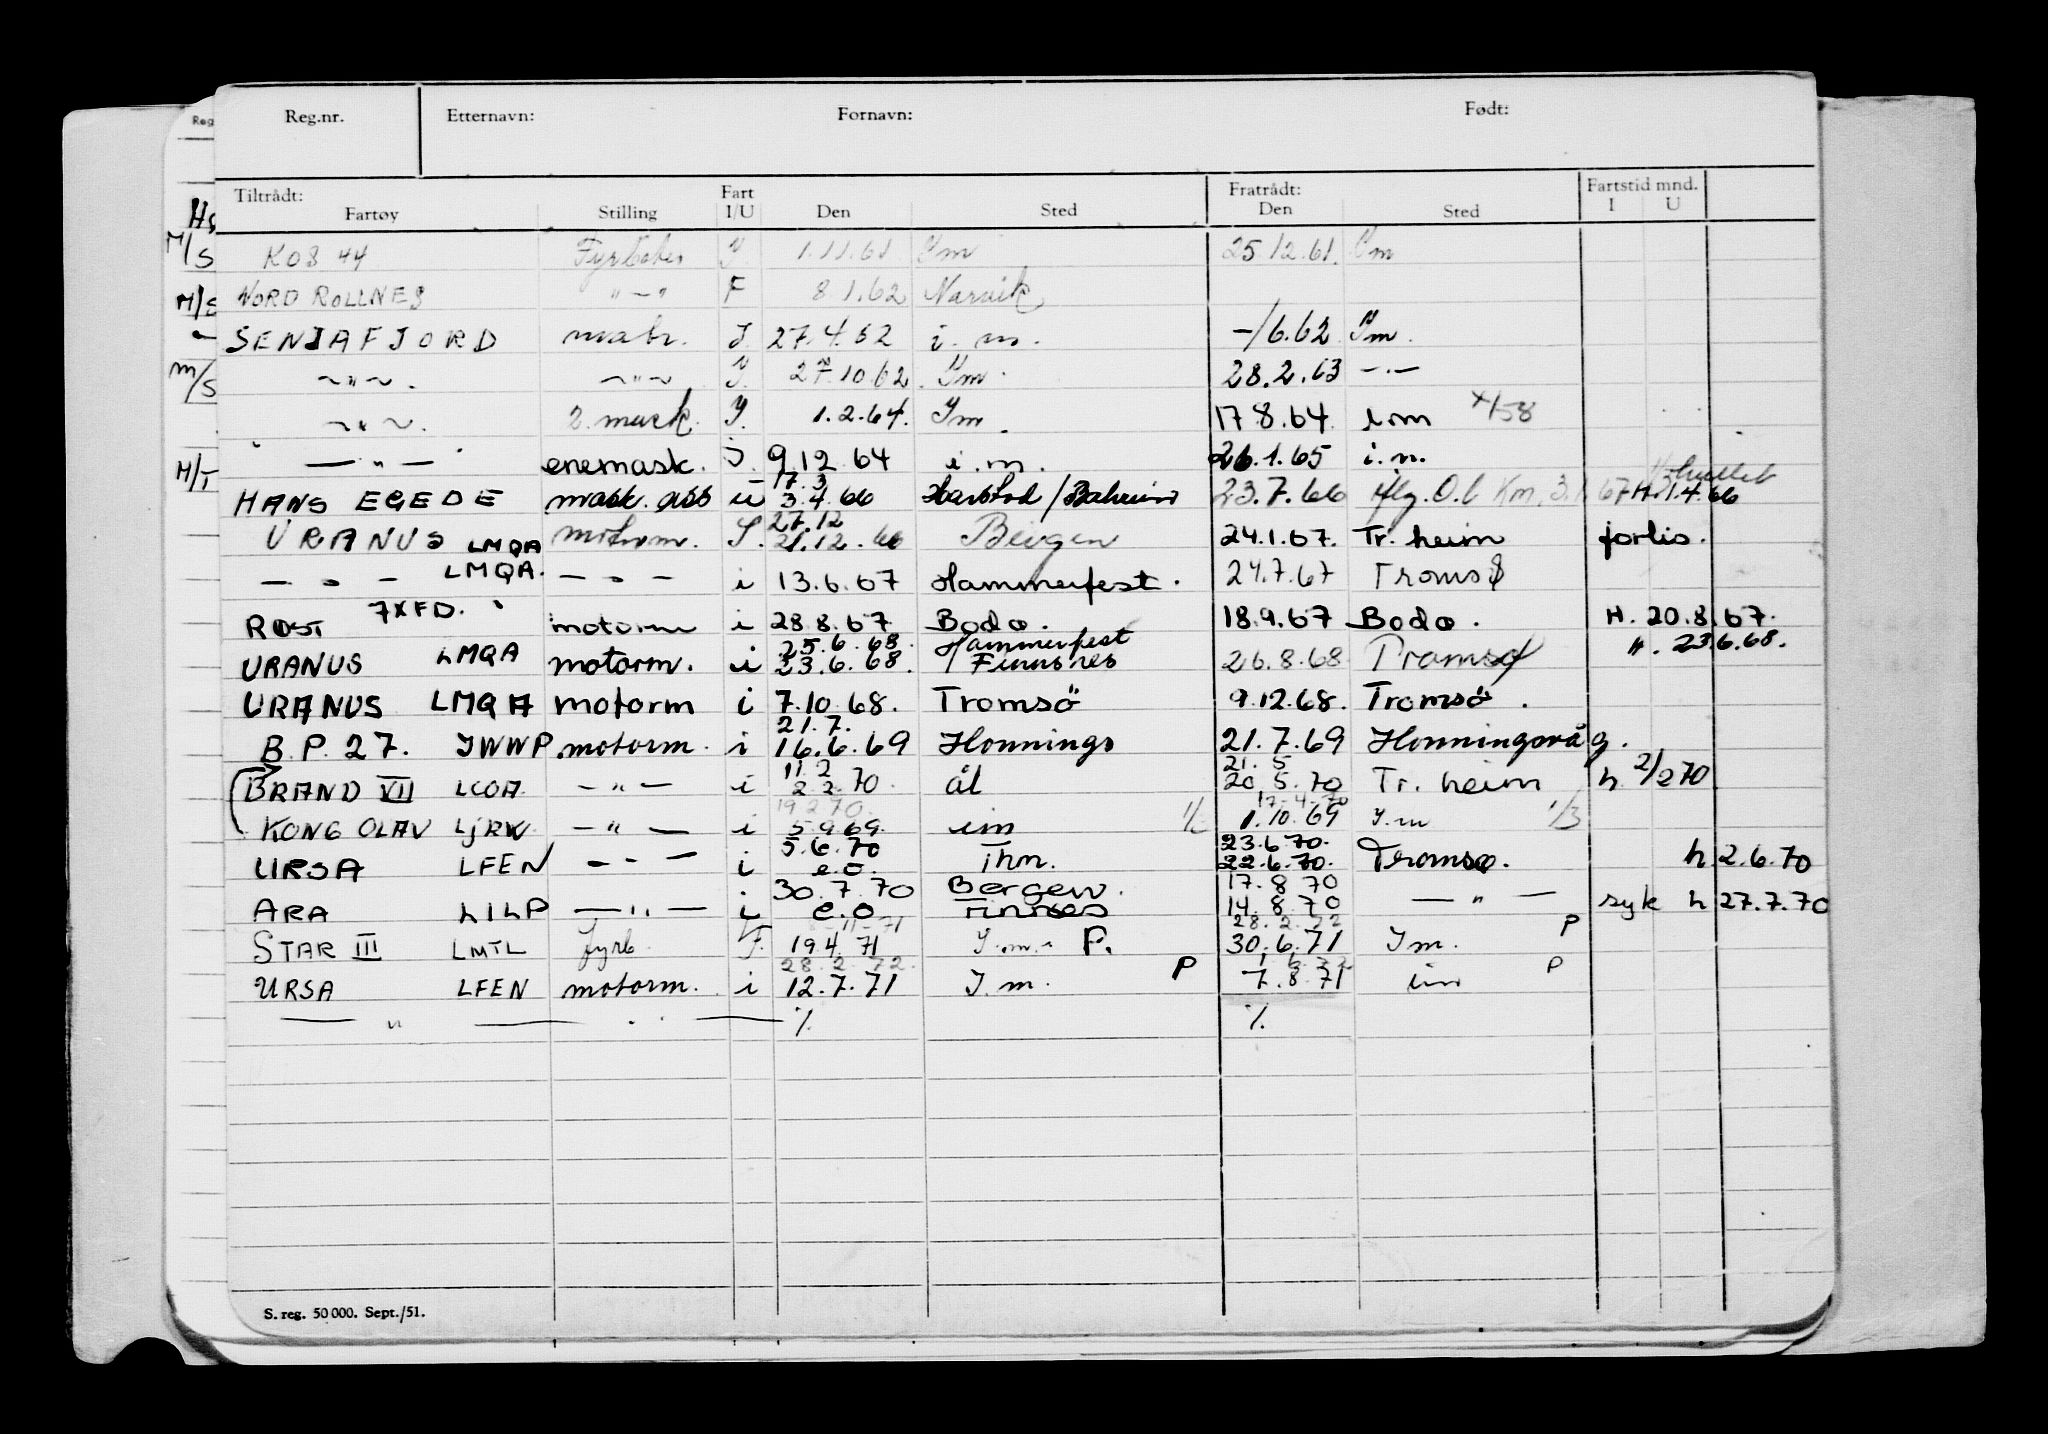 Reg.nr. Etternavn: Fornavn: Født:
Tiltrådt: Fart Fratrådt: Fartstid mnd.
Fartøy Stilling I/U Den Sted Den Sted I U
M/S KOS 44 Fyrbøter I 1.11.61 Im 25.12.61. Im
NORD ROLLNES " — " F 8.1.62 Narvik
SENJAFJORD matr. I. 27.4.62 i. m. -/6.62 Im.
~ " ~ . ~ " ~ I. 27.10.62. Im. 28.2.63 — " —
~ " ~ . 2. mask. I. 1.2.64. Im. 17 8.64. im
— " — enemask. I. 9.12 64 i.m. 26.1.65 i.m.
17.3
HANS EGEDE mask. ass u 3.4.66 Harstad / 23.7.66 H. 31.4.66
27.12
URANUS LMQA motorm. I. 21.12.66 Bergen 24.1.67. Tr. heim forlis.
— " — LMQA. — " — i 13.6.67 Hammerfest. 24.7.67 Tromsø
RØST 7XFD. motorm i 28 8.67 Bodø. 18.9.67 Bodø. H. 20.8.67.
25.6.68. Hammerfest
URANUS LMQA motorm. i 23.6.68. Finnsnes 26.8.68 Tromsø H. 23.6.68.
URANUS LMQA motorm i 7.10.68. Tromsö 9.12.68. Tromsö.
21.7.
B.P. 27. JWWP. motorm. i 16.6.69 Honnings 21.7.69 Honningsvåg.
11.2 21. 5
BRAND VII LCOA — " — i 2 2.70 ål 20.5.70 Tr. heim h 2/2 70
19 2 70. 17-4-70
KONG OLAV LJRW — " — i 5 9 69. im 1.10.69 I.m 1/3
5.6.70 23.6.70.
URSA LFEN — " — i e.o. Thm. 22.6.70. Tromsø. h 2.6.70
30.7.70 Bergen. 17.8 70
ARA LILP — " — i e.o Finnsnes 14.8.70 — " — syk h 27.7.70
28.2.72
STAR III LMTL fyrb. F. 19.4.71 I.m. P. 30.6.71 Im. P
28.2.72.
URSA LFEN motorm. i 12.7.71 I.m. P 7.8.71 im P
— " — — " — % %
S. reg. 50 000. Sept./51.